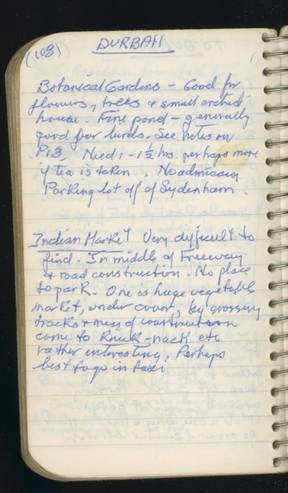 (108) DURBAN
Botanical Gardens - Good for
flowers, trees & small orchid
house. Fine pond - generally
good for birds. See notes on
P13. Need 1 - 1½ hrs. perhaps more
if tea is taken. No admission
Parking lot off of Sydenham.
Indian Market Very difficult to
find. In middle of freeway
& road construction. No place
to park. One is huge vegetable
market, under cover, by crossing
tracks & mess of construction
come to knick-nack etc
rather interesting. Perhaps
best to go in taxi